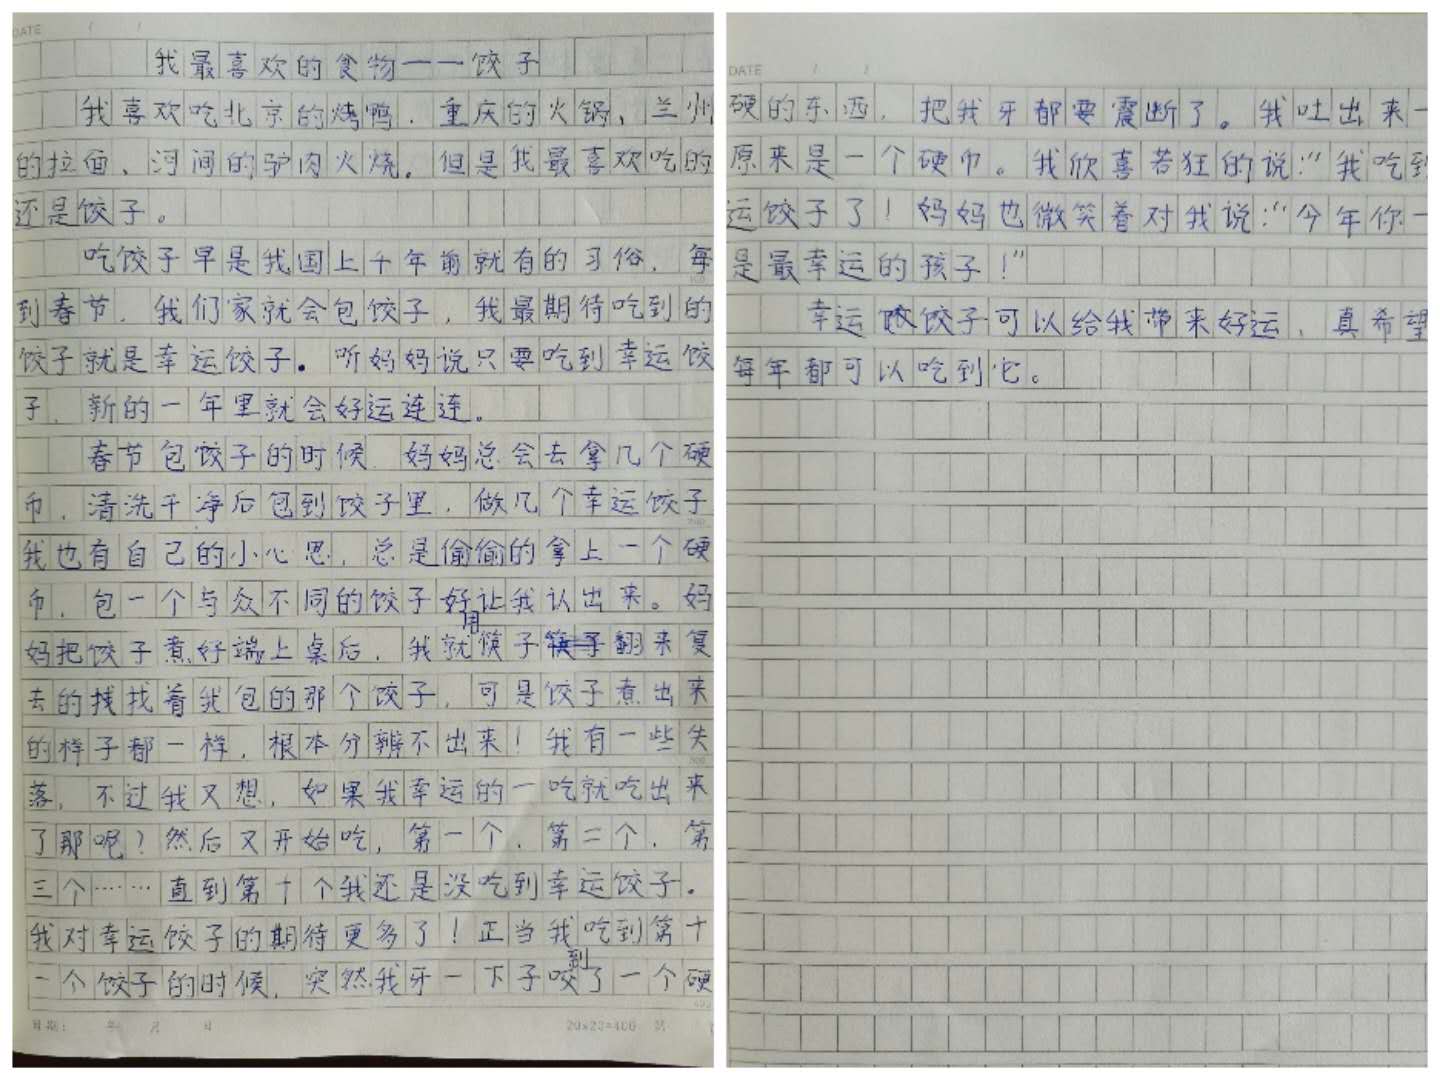 DATE / /
我最喜欢的食物——饺子
我喜欢吃北京的烤鸭、重庆的火锅、兰州
的拉面、河间的驴肉火烧。但是我最喜欢吃的
还是饺子。
吃饺子早是我国上千年前就有的习俗，每
到春节，我们家就会包饺子，我最期待吃到的
饺子就是幸运饺子。听妈妈说只要吃到幸运饺
子，新的一年里就会好运连连。
春节包饺子的时候，妈妈总会去拿几个硬
币，清洗干净后包到饺子里，做几个幸运饺子
我也有自己的小心思，总是偷偷的拿上一个硬
币，包一个与众不同的饺子好让我认出来。妈
妈把饺子煮好端上桌后，我就用筷子翻来复
去的找找着我包的那个饺子，可是饺子煮出来
的样子都一样，根本分辨不出来！我有一些失
落，不过我又想，如果我幸运的一吃就吃出来
了那呢？然后又开始吃，第一个、第二个、第
三个……直到第十个我还是没吃到幸运饺子。
我对幸运饺子的期待更多了！正当我吃到第十
一个饺子的时候，突然我牙一下子咬到了一个硬
日期： 年 月 日
20×20=400 第
DATE / /
硬的东西，把我牙都要震断了。我吐出来一
原来是一个硬币。我欣喜若狂的说：“我吃到
运饺子了！妈妈也微笑着对我说：“今年你一
是最幸运的孩子！”
幸运饺子可以给我带来好运，真希望
每年都可以吃到它。